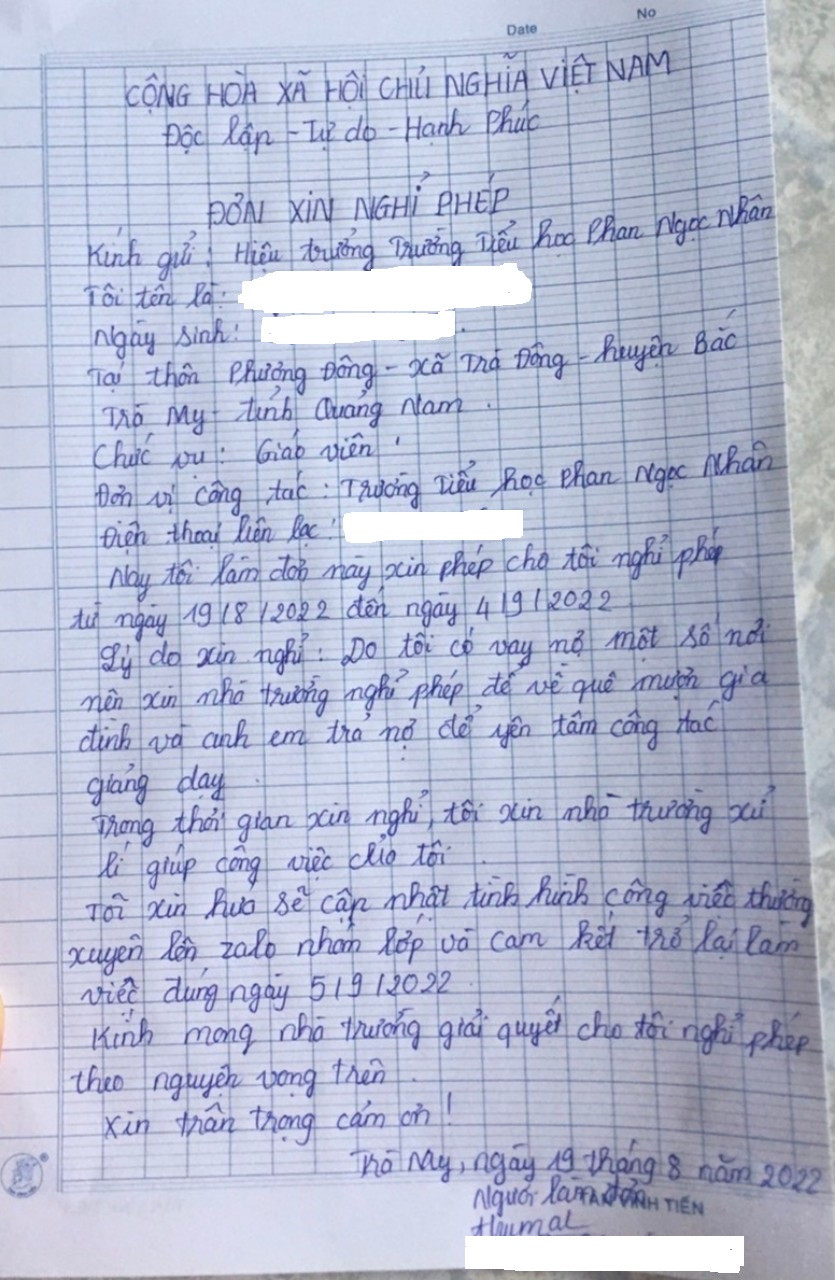 Date No
CỘNG HÒA XÃ HỘI CHỦ NGHĨA VIỆT NAM
Độc lập - Tự do - Hạnh Phúc
ĐƠN XIN NGHỈ PHÉP
Kính gửi: Hiệu trưởng Trường Tiểu học Phan Ngọc Nhân
Tôi tên là:
Ngày sinh:
Tại thôn Phương Đông - xã Trà Đông - huyện Bắc
Trà My - tỉnh Quảng Nam.
Chức vụ: Giáo viên.
Đơn vị công tác: Trường Tiểu học Phan Ngọc Nhân
Điện thoại liên lạc:
Nay tôi làm đơn này xin phép cho tôi nghỉ phép
từ ngày 19/8/2022 đến ngày 4/9/2022
Lý do xin nghỉ: Do tôi có vay nợ một số nơi
nên xin nhà trường nghỉ phép để về quê mượn gia
đình và anh em trả nợ để yên tâm công tác
giảng dạy.
Trong thời gian xin nghỉ, tôi xin nhà trường xử
lí giúp công việc cho tôi.
Tôi xin hứa sẽ cập nhật tình hình công việc thường
xuyên lên zalo nhóm lớp và cam kết trở lại làm
việc đúng ngày 5/9/2022.
Kính mong nhà trường giải quyết cho tôi nghỉ phép
theo nguyện vọng trên.
Xin trân trọng cảm ơn!
Trà My, ngày 19 tháng 8 năm 2022
Người làm đơn
VĨNH TIẾN